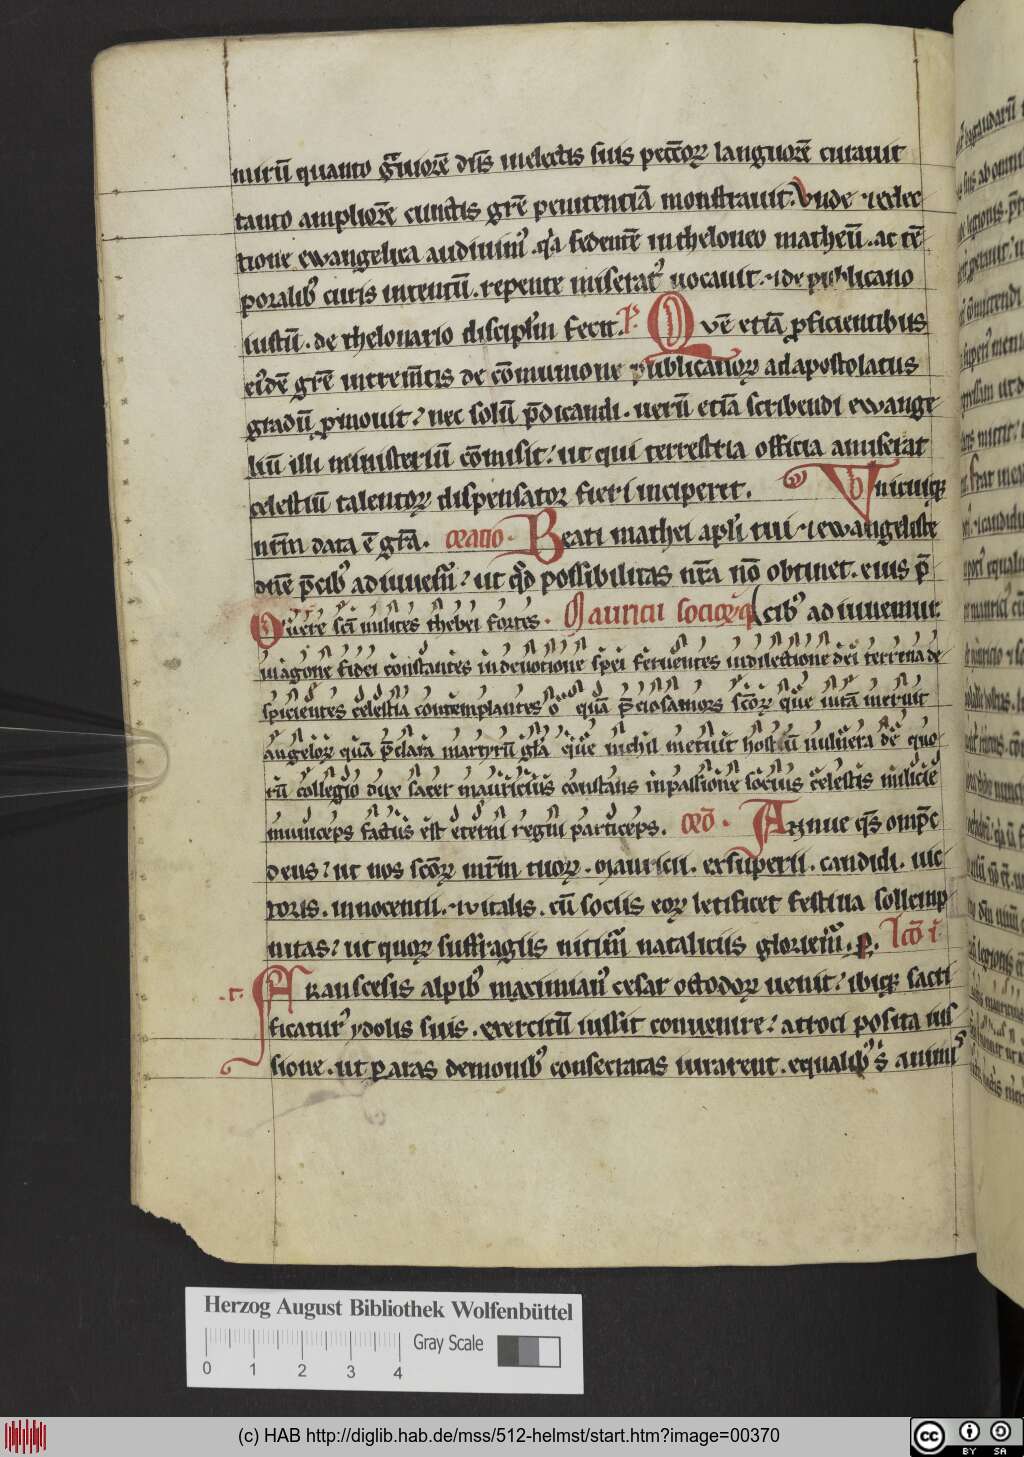 mirū quanto gͣuiorē dn̄s in electis suis pecc̄orꝝ languorē curauit
tanto ampliorē cunctis grē penitenciā monstrauit. Vnde ⁊ lec
tione ewangelica audiuimꝰ. qͥa sedentē in theloneo matheū. ac tē
poralibꝰ curis intentū. repente miseratꝰ uocauit. ⁊ de publicano
iustū. de thelonario discipl̓m fecit. R̓. Qvē etiā ꝓficientibus
eīdē grē increm̄tis de cōmunione publicanorꝝ ad apostolatus
gradū ꝓmouit? nec solū p̄dicandi. uerū etiā scribendi ewange
liū illi ministeriū cōmisit? ut qui terrestria officia amiserat
celestiū talentorꝝ dispensator fieri inciperet. Vnicuiqꝫ
nr̄m data ē gr̄a. oratio. Beati mathei apl̓i tui ⁊ ewangeliste
dn̄e p̄cibꝰ adiuuem̄? ut qͦd possibilitas nr̄a nō obtinet. eius p̄
Overe sc̄i milites thebei fortes. Mauricii sociorꝝqꝫ cibꝰ adiuuemur.
in agone fidei constantes in deuotione spei feruentes in dilectione dei terrena de
spicientes celestia contemplantes o quā p̄ciosa mors sc̄orꝝ que uitā meruit
angelorꝝ quā p̄clara martyrū gl̄a que nichil metuit hostiū uulnera de quo
rū collegio dux sacer mauricius constans in passione socius celestis milicie
municeps factus est eterni regni particeps. Orō. Annue qs̄ omp̄s
deus? ut nos sc̄orꝝ mr̄m tuorꝝ. mauricii. exsuperii. candidi. uic
toris. innocentii. ⁊ uitalis. cū sociis eorꝝ letificet festiua sollemp
nitas? ut quorꝝ suffragiis nitim̄ nataliciis gloriem̄. p. Lc̄o i
.t. Aranscesis alpibꝰ maximianꝰ cesar octodorꝝ uenit? ibiqꝫ sacri
ficaturꝰ ydolis suis. exercitū iussit conuenire? atroci posita ius
sione. ut ꝑ aras demonibꝰ consecratas iurarent. equalibꝰ s̄ animiꝰ
Herzog August Bibliothek Wolfenbüttel
Gray Scale
0 1 2 3 4
(c) HAB http://diglib.hab.de/mss/512-helmst/start.htm?image=00370
cc BY SA